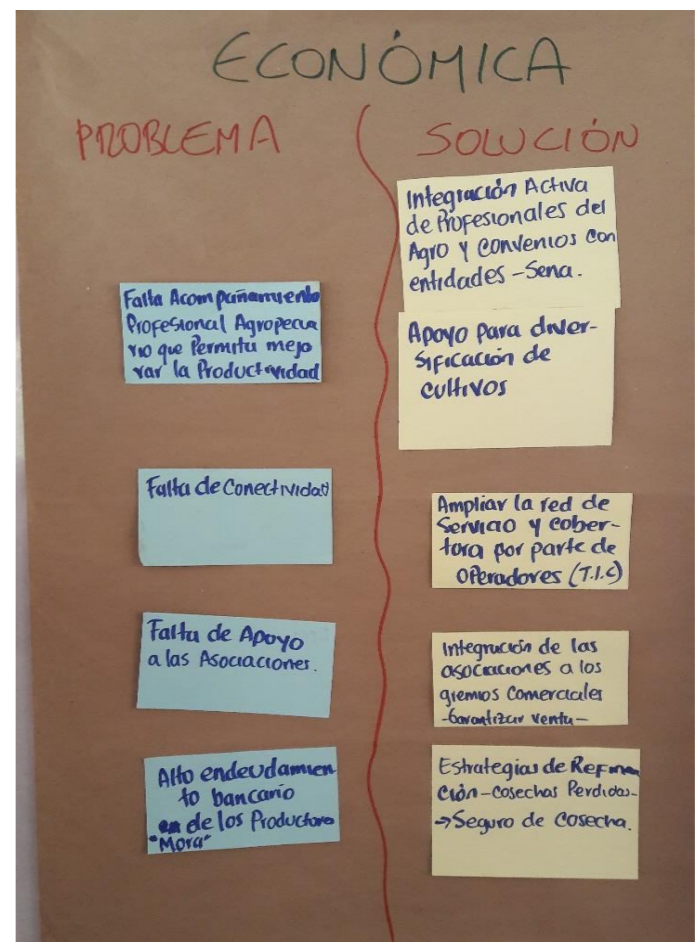 ECONÓMICA
PROBLEMA
Falta Acompañamiento
Profesional Agropecua
rio que Permita mejo
rar la Productividad
Falta de Conectividad
Falta de Apoyo
a las Asociaciones.
Alto endeudamien
to bancario
de los Productores
"Mora"
SOLUCIÓN
Integración Activa
de Profesionales del
Agro y convenios con
entidades - Sena.
Apoyo para diver-
sificación de
cultivos
Ampliar la red de
Servicio y cober-
tura por parte de
Operadores (T.I.C)
Integración de las
asociaciones a los
gremios comerciales
- Garantizar venta -
Estrategias de
ción - Cosechas Perdidas -
→ Seguro de Cosecha.